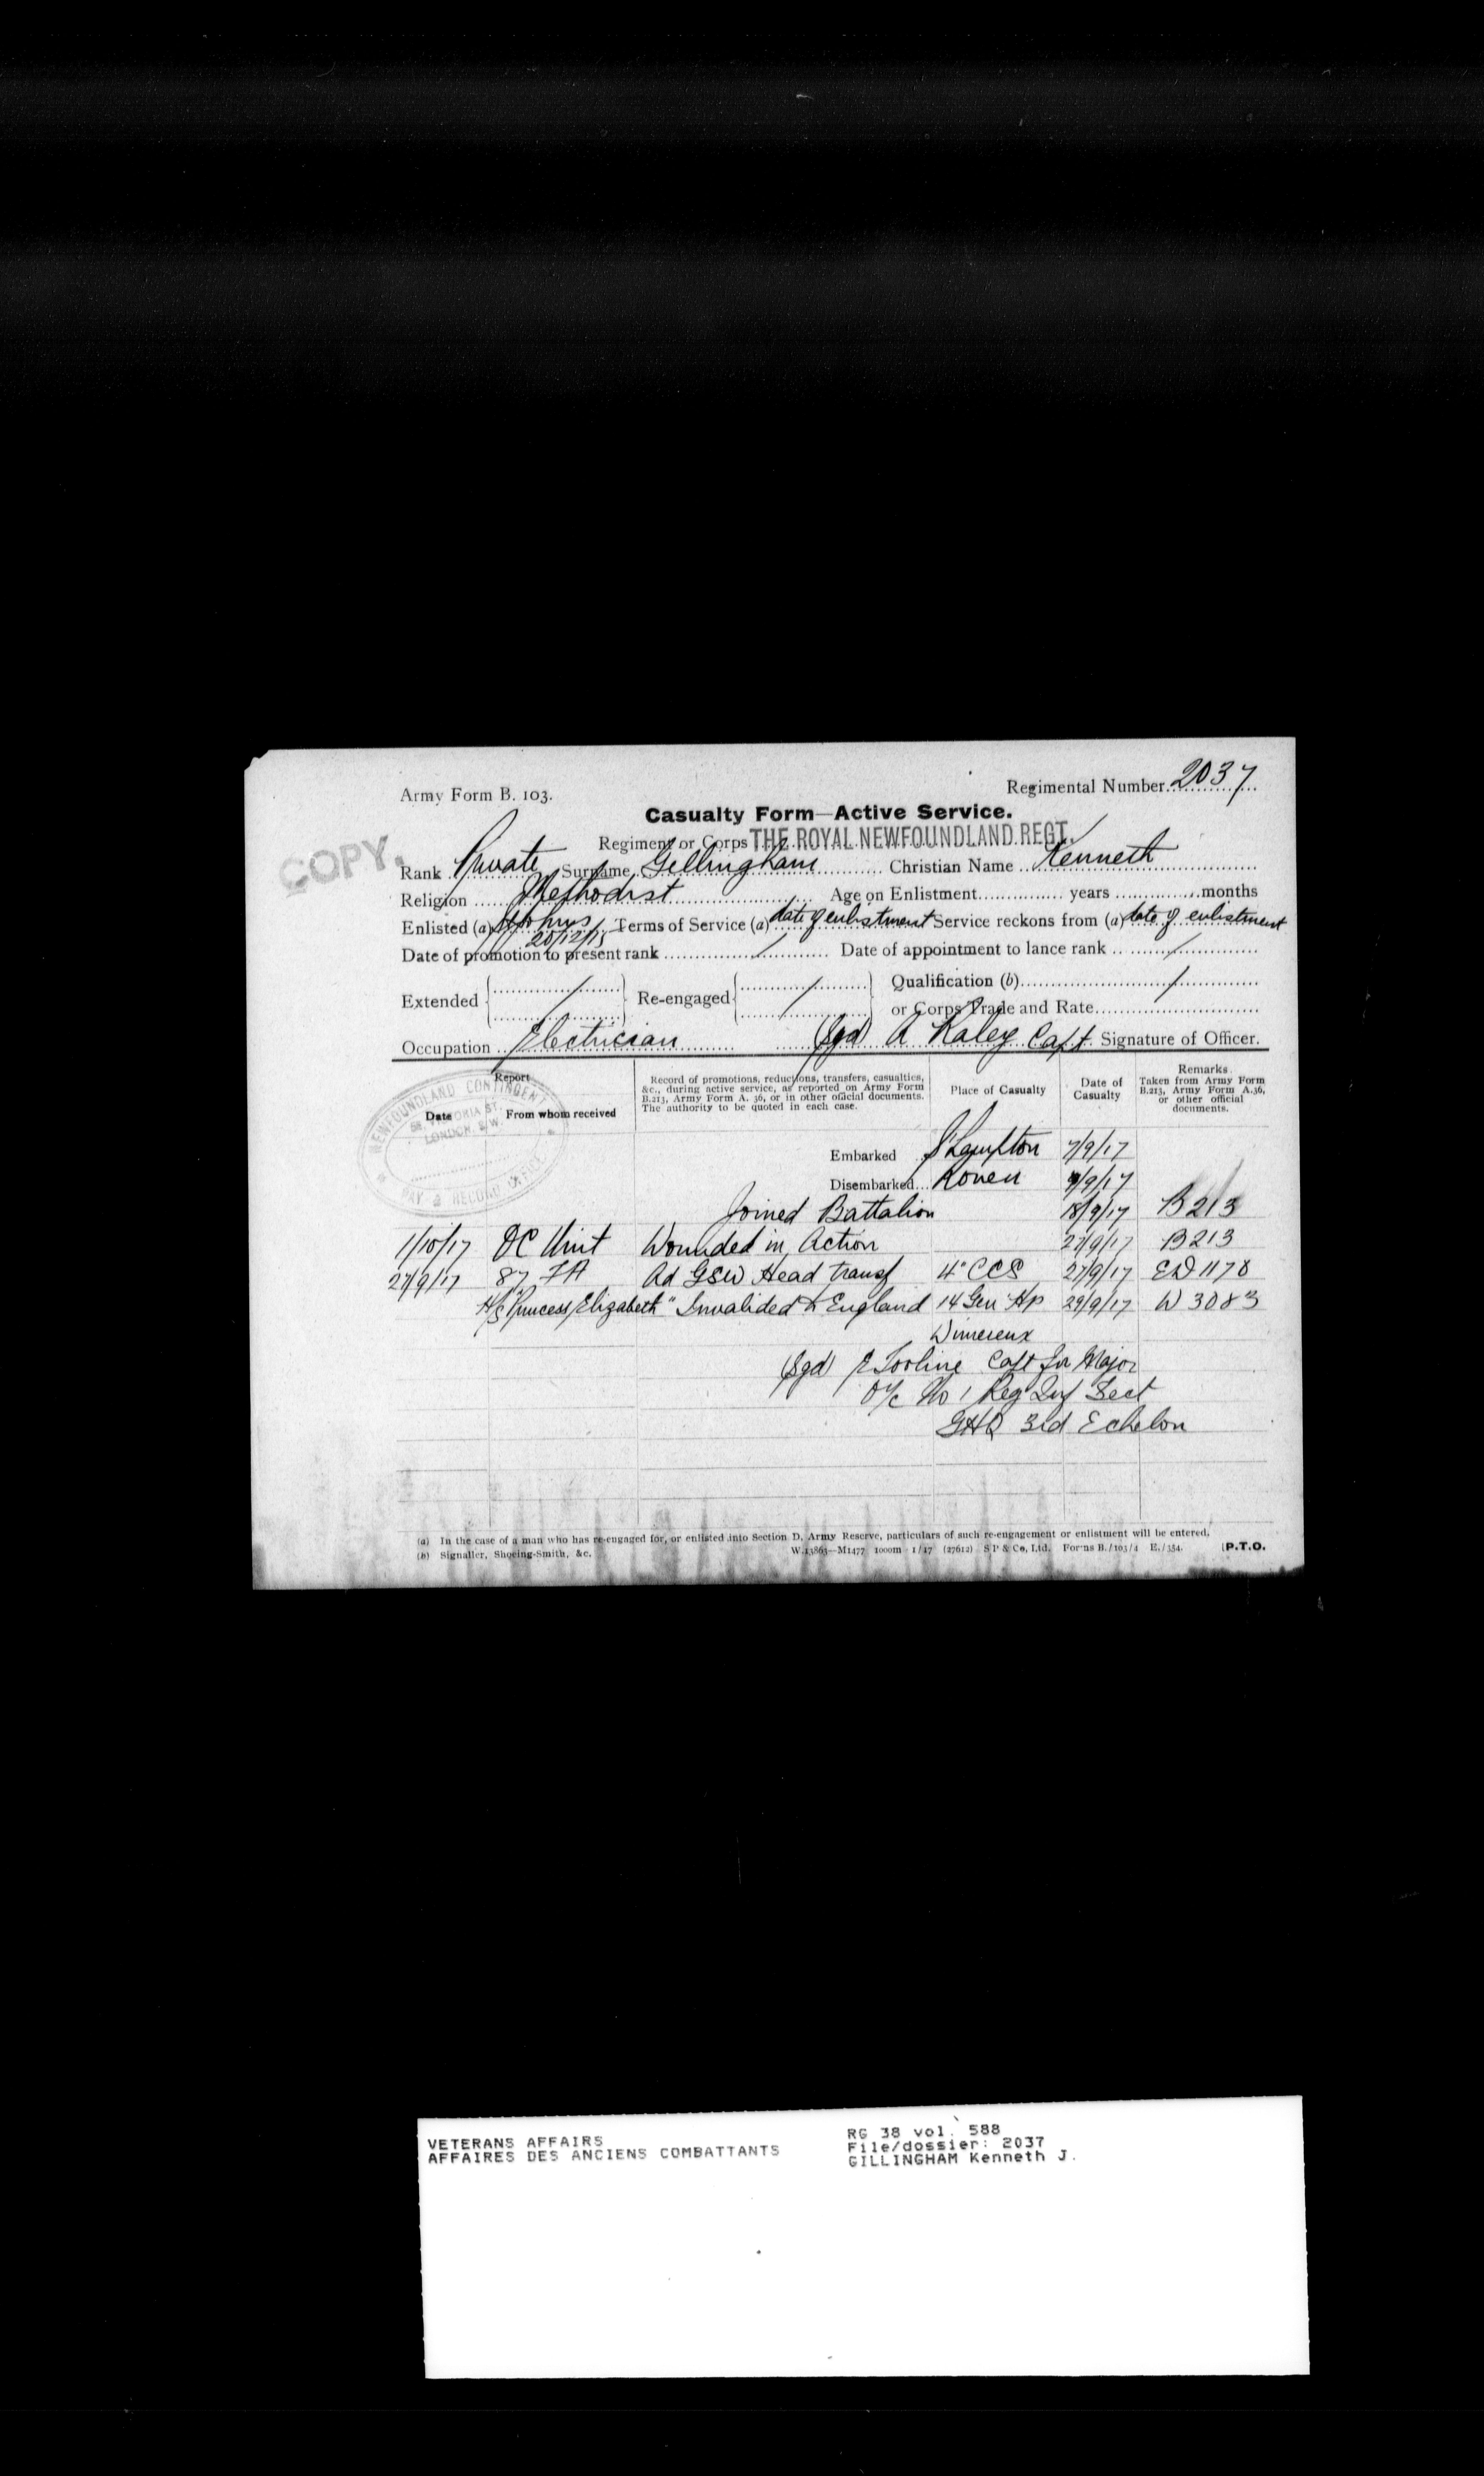 Army Form B. 103.
Regimental Number 2037
Casualty Form—Active Service.
COPY.
Regiment or Corps THE ROYAL NEWFOUNDLAND REGT.
Rank Private Surname Gillingham Christian Name Kenneth
Religion Methodist Age on Enlistment years months
Enlisted (a) St Johns Terms of Service (a) date of enlistment Service reckons from (a) date of enlistment
20/12/15
Date of promotion to present rank / Date of appointment to lance rank /
Extended / Re-engaged / Qualification (b) /
or Corps Trade and Rate
Occupation Electrician (Sgd) A Raley Capt Signature of Officer.
Report
Date From whom received
Record of promotions, reductions, transfers, casualties, &c., during active service, as reported on Army Form B.213, Army Form A. 36, or in other official documents. The authority to be quoted in each case.
Place of Casualty
Date of Casualty
Remarks Taken from Army Form B.213, Army Form A.36, or other official documents.
NEWFOUNDLAND CONTINGENT
58, VICTORIA ST.
LONDON, S.W.
PAY & RECORD OFFICE
Embarked S'Hampton 7/9/17
Disembarked Rouen 9/9/17
Joined Battalion 18/9/17 B213
1/10/17 OC Unit Wounded in Action 27/9/17 B213
27/9/17 87 FA Ad GSW Head transf 4" CCS 27/9/17 ED 1178
H/S "Princess Elizabeth" Invalided to England 14 Gen Hp 29/9/17 W 3083
Wimereux
(Sgd) Capt for Major
O/c No 1 Reg Inf Sect
GHQ 3rd Echelon
(a) In the case of a man who has re-engaged for, or enlisted into Section D, Army Reserve, particulars of such re-engagement or enlistment will be entered.
(b) Signaller, Shoeing-Smith, &c. W.13863—M1477 1000m 1/17 (27612) S P & Co, Ltd. Forms B./103/4 E./354. [P.T.O.
VETERANS AFFAIRS
AFFAIRES DES ANCIENS COMBATTANTS
RG 38 vol. 588
File/dossier: 2037
GILLINGHAM Kenneth J.